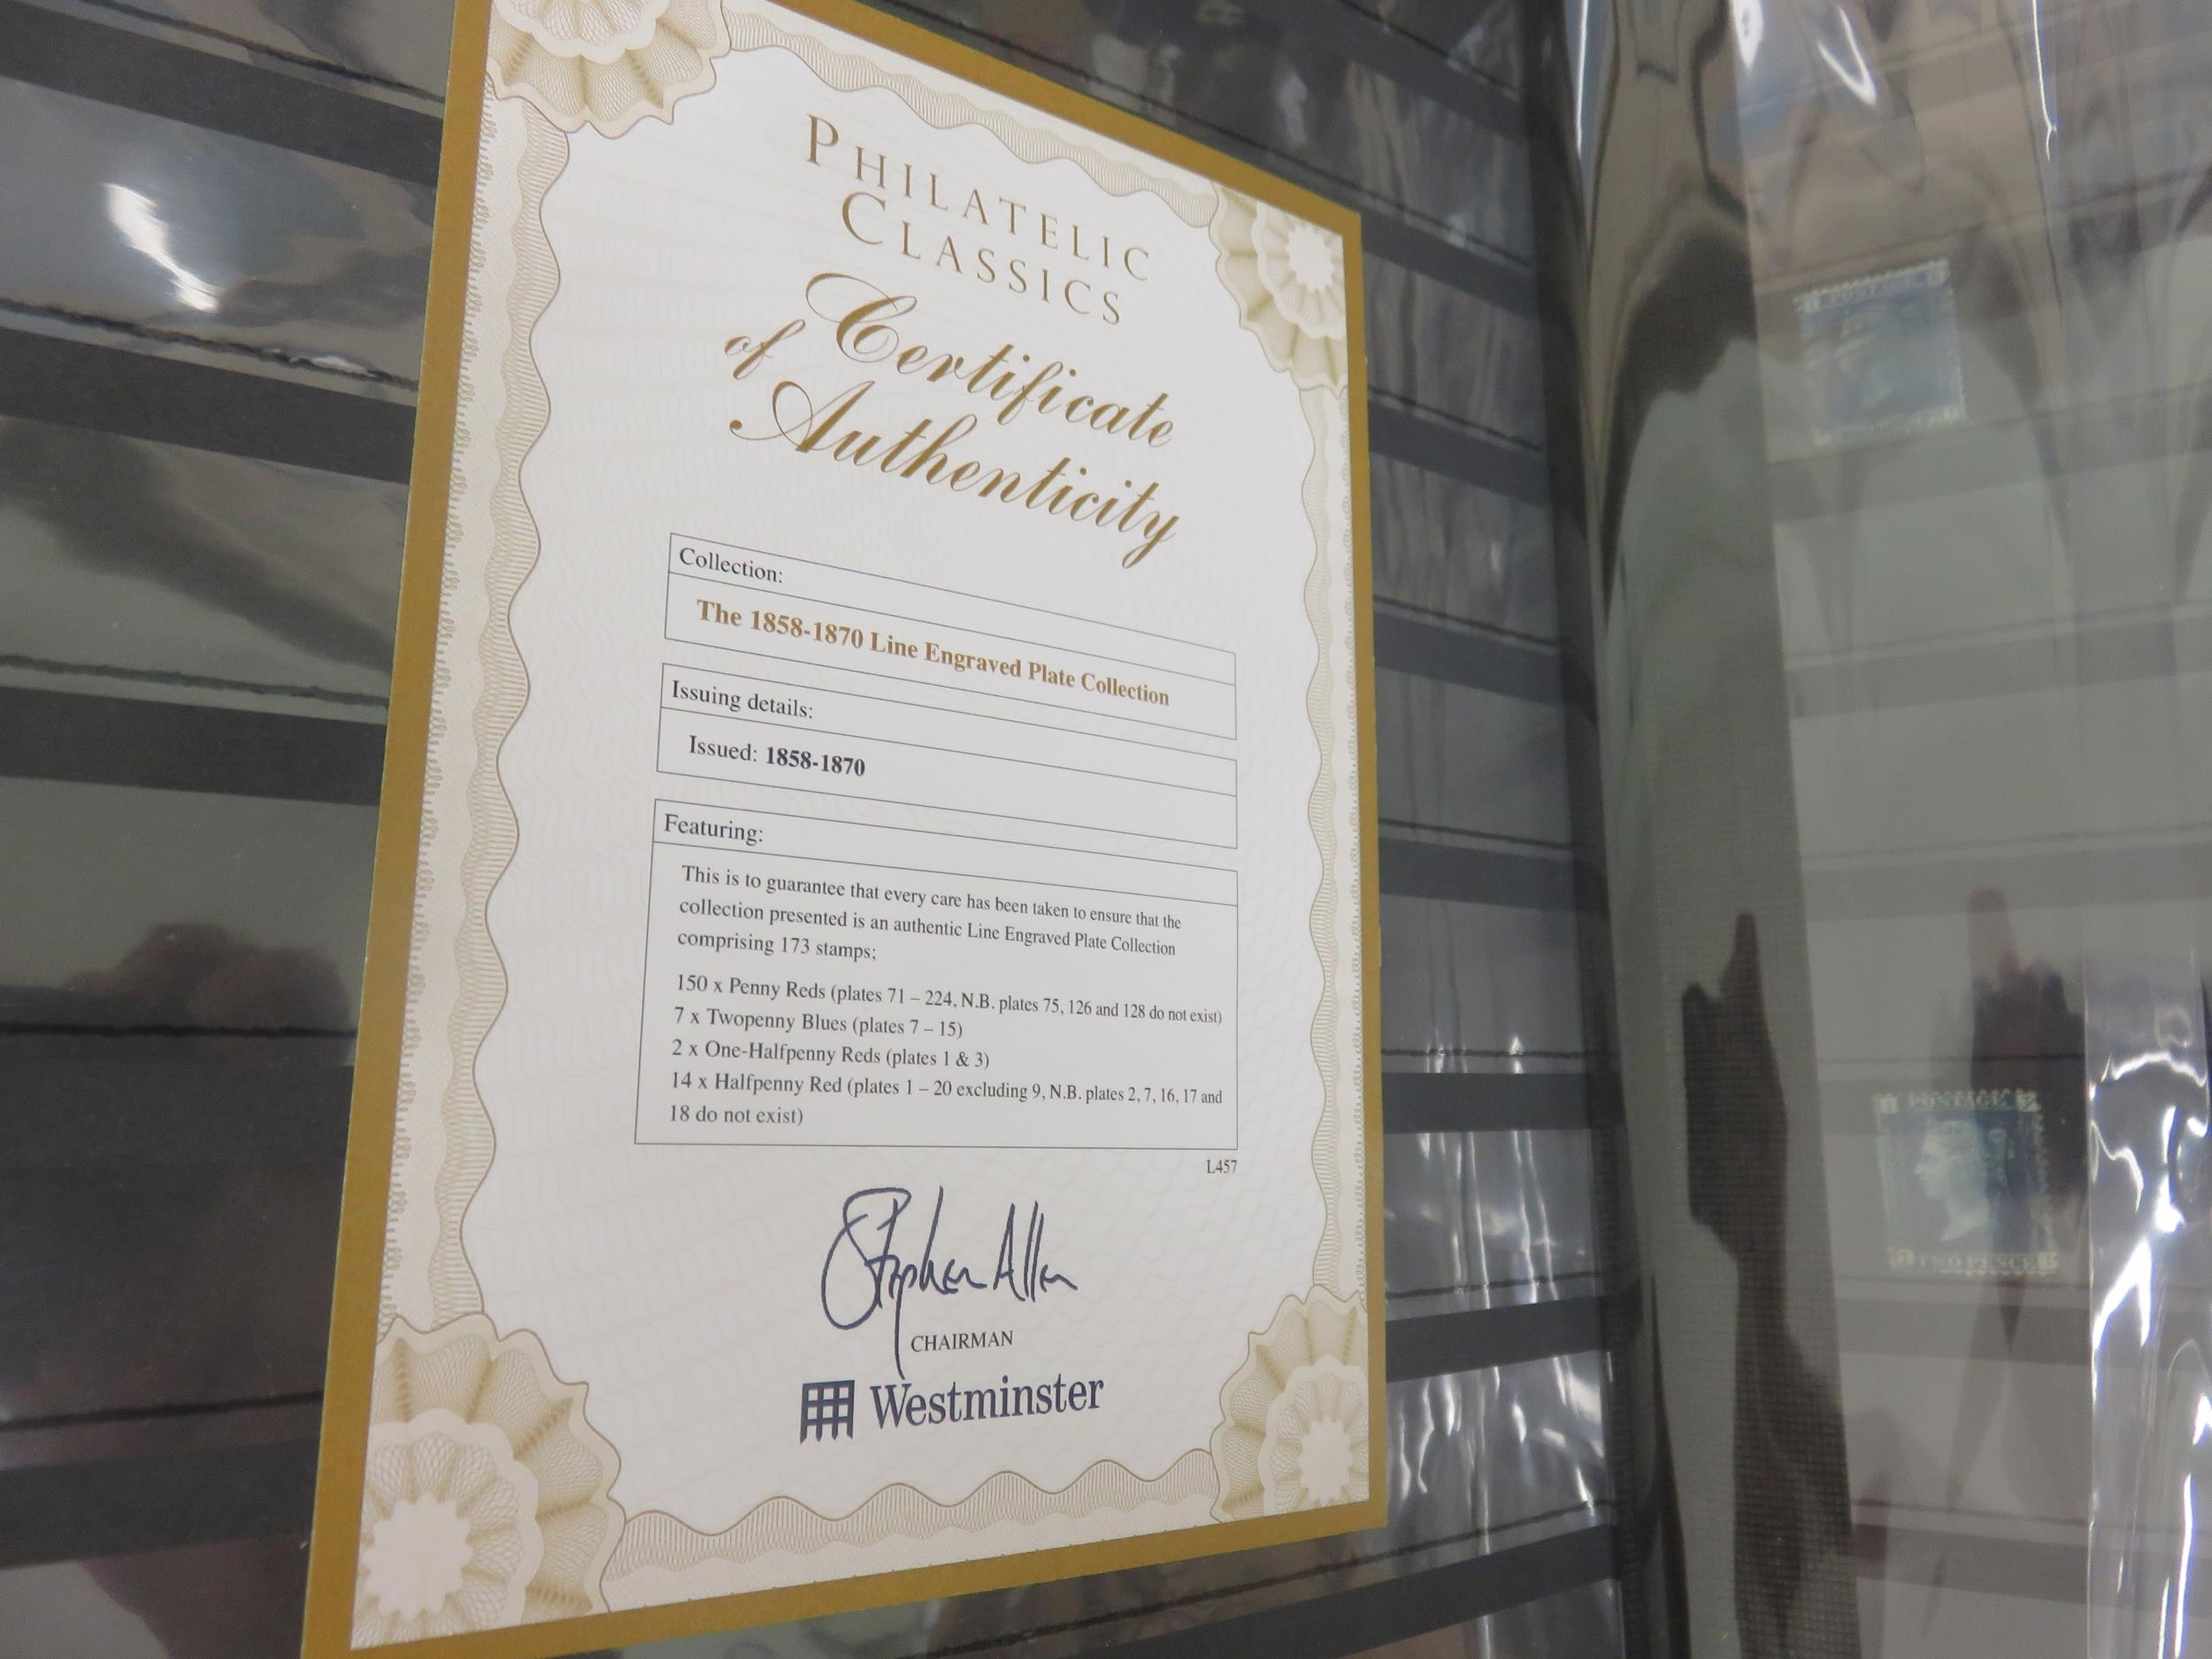 PHILATELIC
CLASSICS
Certificate
of
Authenticity
Collection:
The 1858-1870 Line Engraved Plate Collection
Issuing details:
Issued: 1858-1870
Featuring:
This is to guarantee that every care has been taken to ensure that the
collection presented is an authentic Line Engraved Plate Collection
comprising 173 stamps;
150 x Penny Reds (plates 71 – 224, N.B. plates 75, 126 and 128 do not exist)
7 x Twopenny Blues (plates 7 – 15)
2 x One-Halfpenny Reds (plates 1 & 3)
14 x Halfpenny Red (plates 1 – 20 excluding 9, N.B. plates 2, 7, 16, 17 and
18 do not exist)
L457
Stephen Allen
CHAIRMAN
Westminster
POSTAGE
POSTAGE
TWO PENCE